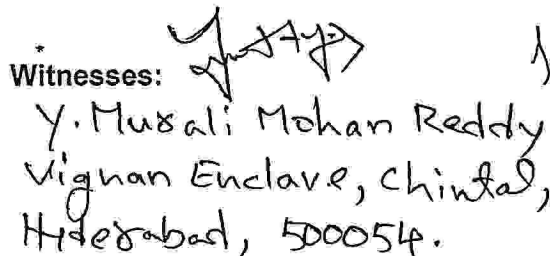 Witnesses:
Y. Murali Mohan Reddy
Vignan Enclave, Chintal,
Hyderabad, 500054.